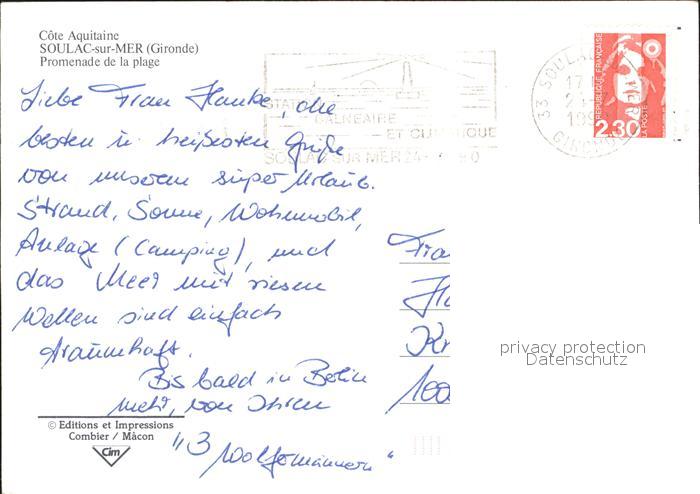 Côte Aquitaine
SOULAC-sur-MER (Gironde)
Promenade de la plage
Liebe Frau Hanke, die
besten u. heißesten Grüße
von unserem super Urlaub.
Strand, Sonne, Wohnmobil,
Anlage (Camping), und
das Meer mit riesen
Wellen sind einfach
traumhaft.
Bis bald in Berlin
mehr, von Ihren
"3
Wolfsmännern"
© Editions et Impressions
Combier / Mâcon
Cim
BALNEAIRE
ET CLIMATIQUE
SOULAC SUR MER
33 SOULAC
17
REPUBLIQUE FRANÇAISE
2,30
LA POSTE
Frau
Kr
100
privacy protection
Datenschutz